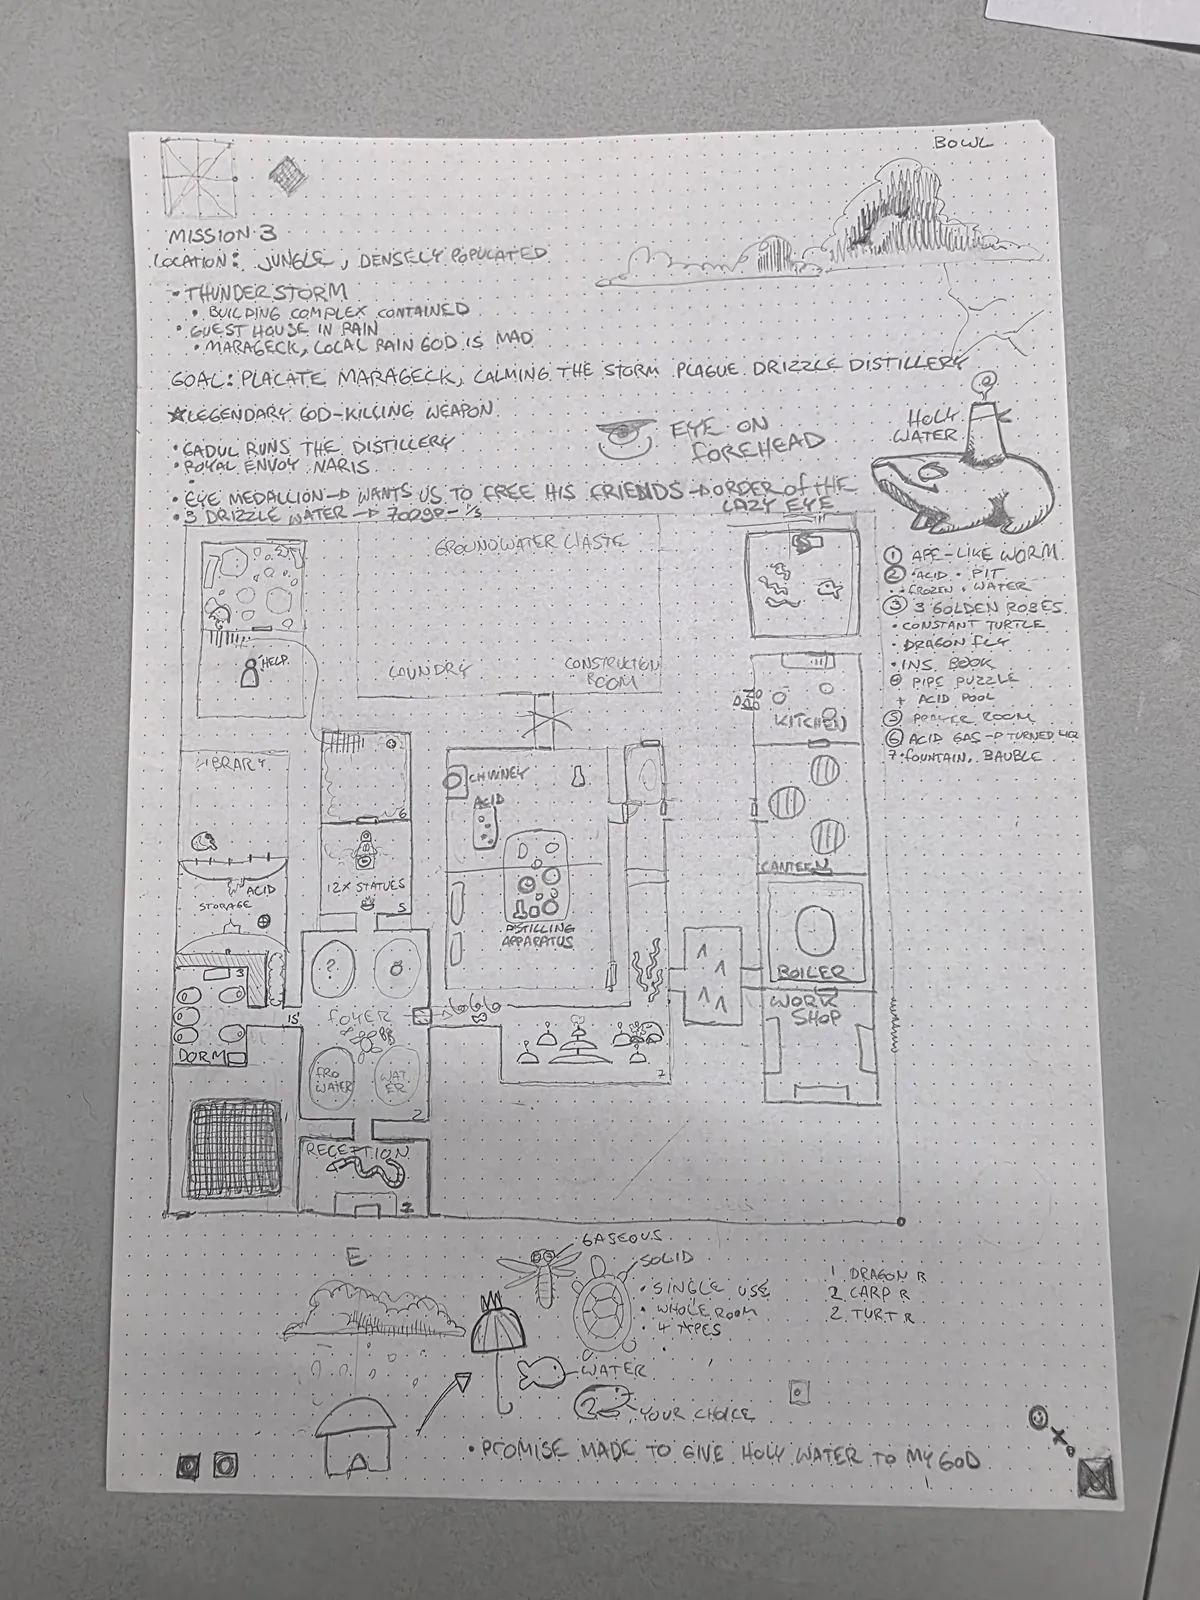 BOWL
MISSION 3
LOCATION: JUNGLE, DENSELY POPULATED
• THUNDERSTORM
• BUILDING COMPLEX CONTAINED
• GUEST HOUSE IN RAIN
• MARAGECK, LOCAL RAIN GOD IS MAD
GOAL: PLACATE MARAGECK, CALMING THE STORM PLAGUE DRIZZLE DISTILLERY
LEGENDARY GOD-KILLING WEAPON
EYE ON
FOREHEAD
HOLY
WATER
• GADUL RUNS THE DISTILLERY
• ROYAL ENVOY NARIS
• EYE MEDALLION → WANTS US TO FREE HIS FRIENDS → ORDER OF THE
LAZY EYE
• 3 DRIZZLE WATER → 700GP
GROUNDWATER
① APE-LIKE WORM
② ACID • PIT
FROZEN • WATER
③ 3 GOLDEN ROBES
• CONSTANT TURTLE
• DRAGON FLY
• INS. BOOK
PIPE PUZZLE
+ ACID POOL
⑤ PRAYER ROOM
⑥ ACID GAS → TURNED
7: FOUNTAIN, BAUBLE
HELP
LAUNDRY
CONSTRUCTION
ROOM
KITCHEN
LIBRARY
CHIMNEY
ACID
6
CANTEEN
12X STATUES
5
ACID
STORAGE
DISTILLING
APPARATUS
BOILER
3
?
WORK
SHOP
FOYER
DORM
FRO
WATER
WAT
ER
7
2
RECEPTION
E
GASEOUS
SOLID
• SINGLE USE
• WHOLE ROOM
• 4 APES
1 DRAGON R
2 CARP R
2 TURT R
WATER
YOUR CHOICE
• PROMISE MADE TO GIVE HOLY WATER TO MY GOD